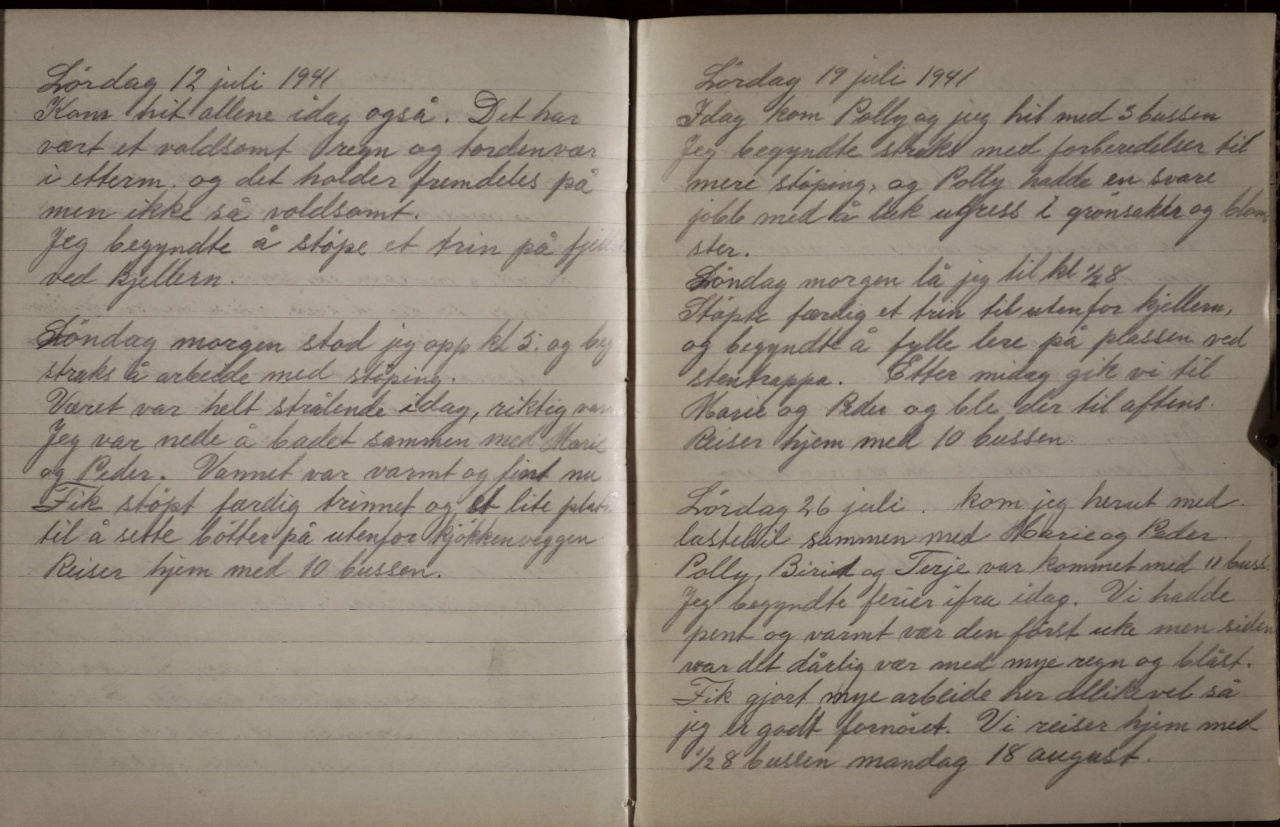 Lørdag 12 juli 1941
Kom hit allene idag også. Det har
vært et voldsomt regn og tordenvær
i etterm. og det holder fremdeles på
men ikke så voldsomt.
Jeg begyndte å støpe et trin på
ved kjellern.
Søndag morgen stod jeg opp kl 5. og beg
straks å arbeide med støping.
Været var helt strålende idag, riktig
Jeg var nede å badet sammen med Marie
og Peder. Vannet var varmt og fint nu
Fik støpt færdig trinnet og et lite
til å sette bøtter på utenfor kjøkkenveggen
Reiser hjem med 10 bussen.
Lørdag 19 juli 1941
Idag kom Polly og jeg hit med 3 bussen
Jeg begyndte straks med forberedelser til
mere støping, og Polly hadde en svare
jobb med å luk ugress i grønsaker og blom-
ster.
Søndag morgen lå jeg til kl 1/2 8
Støpte færdig et trin til utenfor kjellern,
og begyndte å fylle lere på plassen ved
stentrappa. Etter midag gik vi til
Marie og Peder og ble der til aftens.
Reiser hjem med 10 bussen.
Lørdag 26 juli. kom jeg herut med
lastebil sammen med Marie og Peder.
Polly, og Terje var kommet med 11 buss.
Jeg begyndte ferier ifra idag. Vi hadde
pent og varmt vær den først uke men siden
var det dårlig vær med mye regn og blåst.
Fik gjort mye arbeide her allikevel så
jeg er godt fornøiet. Vi reiser hjem med
1/2 8 bussen mandag 18 august.